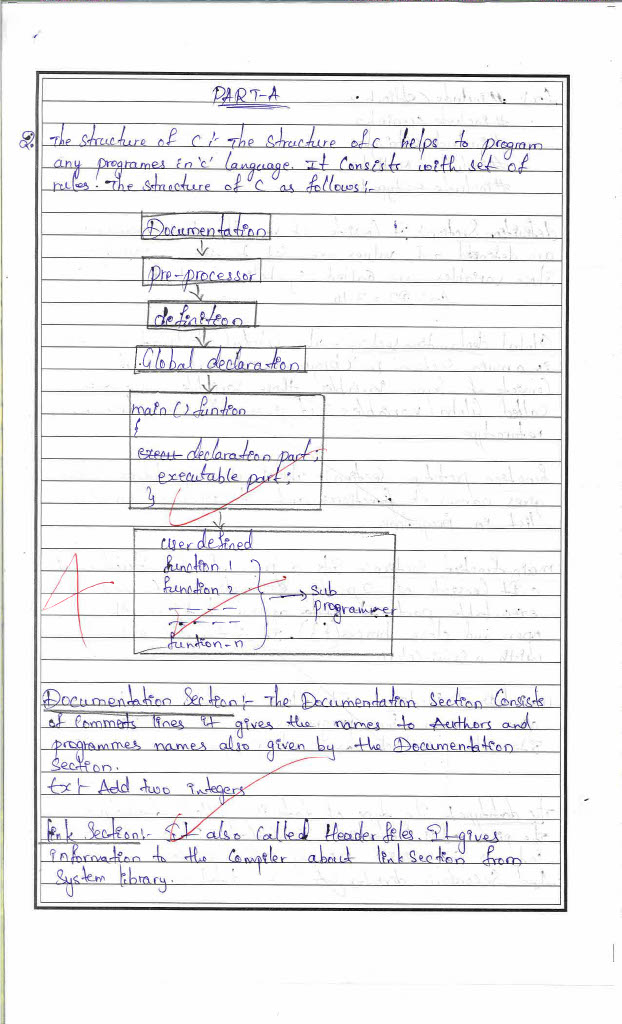 PART-A
2. The structure of C :- The structure of c helps to program
any programes in 'c' language. It Consists with set of
rules. The structure of C as follows :-
Documentation
pre-processor
definition
Global declaration
main () funtion
{
declaration part;
executable part;
}
User defined
function 1
function 2
sub
programmer
funtion-n
4
Documentation Section :- The Documentation Section Consists
of Comments lines it gives the names to Authors and
programmes names also given by the Documentation
Section.
Ex :- Add two integers
link Section :- It also Called Header files. It gives
information to the Compiler about link Section from
System library.